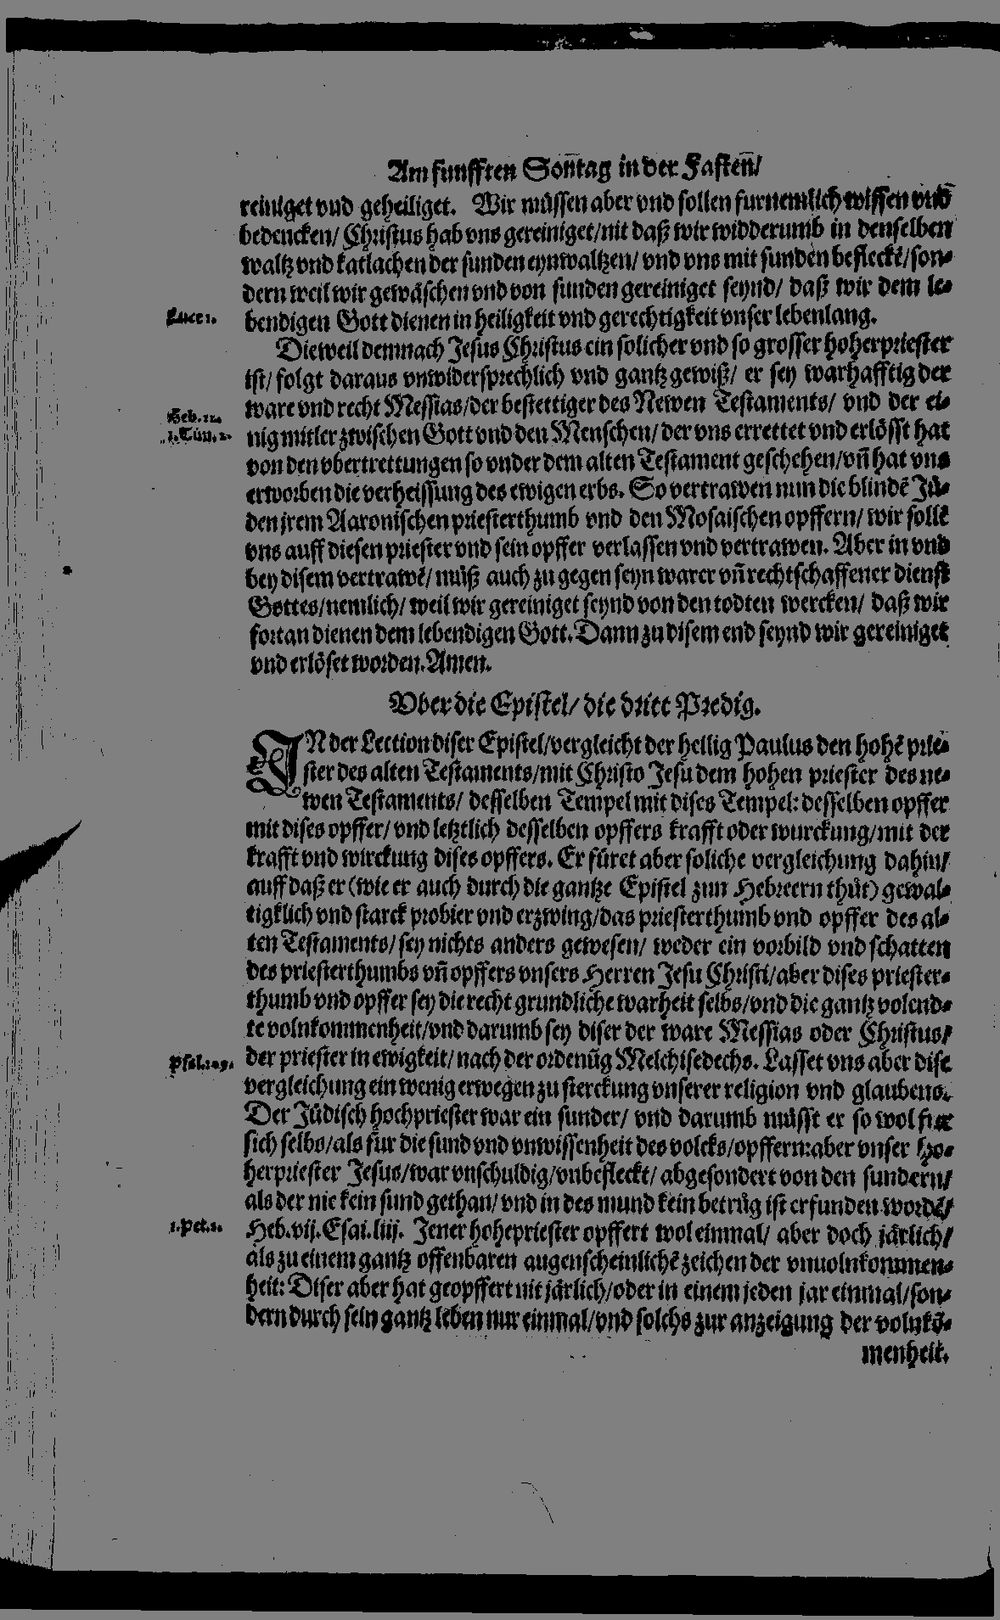 Am funfften Soñtag in der Fasteñ/
reiniget vnd geheiliget. Wir müssen aber vnd sollen furnemlich wissen vnd
bedencken/ Christus hab vns gereiniget/nit daß wir widderumb in denselben
waltz vnd katlachen der sunden eynwaltzen/ vnd vns mit sunden befleckē/son-
dern weil wir gewäschen vnd von sunden gereiniget seynd/ daß wir dem le-
Luce 1.
bendigen Gott dienen in heiligkeit vnd gerechtigkeit vnser lebenlang.
Dieweil demnach Jesus Christus ein solicher vnd so grosser hoherpriester
ist/ folgt daraus vnwidersprechlich vnd gantz gewiß/ er sey warhafftig der
Heb. 12.
ware vnd recht Messias/der bestettiger des Newen Testaments/ vnd der ei-
1. Tim. 2.
nig mitler zwischen Gott vnd den Menschen/ der vns errettet vnd erlösst hat
von den vbertrettungen so vnder dem alten Testament geschehen/vñ hat vns
erworben die verheissung des ewigen erbs. So vertrawen nun die blindē Jü-
den jrem Aaronischen priesterthumb vnd den Mosaischen opffern/ wir sollē
vns auff diesen priester vnd sein opffer verlassen vnd vertrawen. Aber in vnd
bey disem vertrawē/ müß auch zu gegen seyn warer vñ rechtschaffener dienst
Gottes/nemlich/ weil wir gereiniget seynd von den todten wercken/ daß wir
fortan dienen dem lebendigen Gott. Dann zu disem end seynd wir gereiniget
vnd erlöset worden. Amen.
Vber die Epistel/ die dritt Predig.
IN der Lection diser Epistel/vergleicht der heilig Paulus den hohē prie-
ster des alten Testaments/mit Christo Jesu dem hohen priester des ne-
wen Testaments/ desselben Tempel mit dises Tempel: desselben opffer
mit dises opffer/ vnd letztlich desselben opffers krafft oder wurckung/mit der
krafft vnd wirckung dises opffers. Er füret aber soliche vergleichung dahin/
auff daß er (wie er auch durch die gantze Epistel zun Hebreern thüt) gewal-
tigklich vnd starck probier vnd erzwing/das priesterthumb vnd opffer des al-
ten Testaments/ sey nichts anders gewesen/ weder ein vorbild vnd schatten
des priesterthumbs vñ opffers vnsers Herren Jesu Christi/aber dises priester-
thumb vnd opffer sey die recht grundliche warheit selbs/vnd die gantz volend-
te volnkommenheit/vnd darumb sey diser der ware Messias oder Christus/
Psal. 109.
der priester in ewigkeit/ nach der ordenūg Melchisedechs. Lasset vns aber dise
vergleichung ein wenig erwegen zu sterckung vnserer religion vnd glaubens.
Der Jüdisch hochpriester war ein sunder/ vnd darumb müsst er so wol fur
sich selbs/als für die sund vnd vnwissenheit des volcks/opffern: aber vnser ho-
herpriester Jesus/war vnschuldig/vnbefleckt/ abgesondert von den sundern/
als der nie kein sund gethan/ vnd in des mund kein betrüg ist erfunden wordē/
1. Pet. 2.
Heb. vij. Esai. liij. Jener hohepriester opffert wol einmal/ aber doch järlich/
als zu einem gantz offenbaren augenscheinlichē zeichen der vnuolnkommen-
heit: Diser aber hat geopffert nit järlich/oder in einem jeden jar einmal/son-
dern durch sein gantz leben nur einmal/vnd solchs zur anzeigung der volnkō-
menheit.